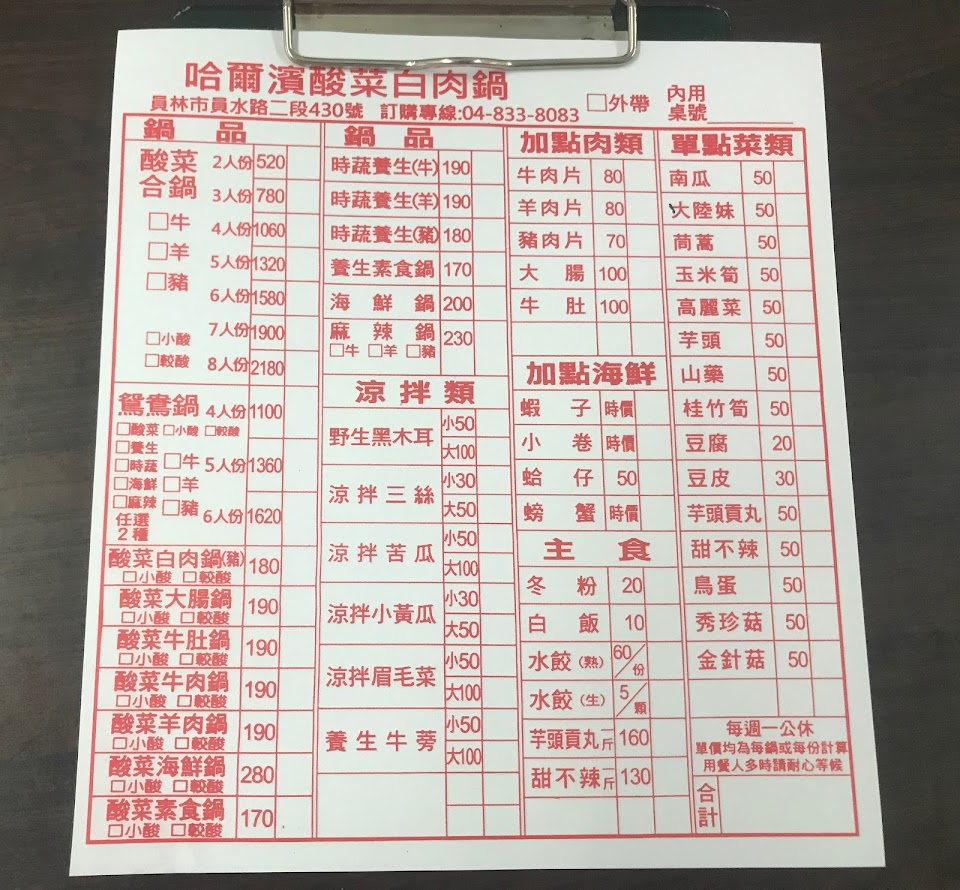 哈爾濱酸菜白肉鍋
員林市員水路二段430號 訂購專線:04-833-8083
□外帶
內用
桌號
鍋品
酸菜合鍋
□牛
□羊
□豬
□小酸
□較酸
2人份 520
3人份 780
4人份 1060
5人份 1320
6人份 1580
7人份 1900
8人份 2180
鴛鴦鍋
□酸菜 □小酸 □較酸
□養生
□時蔬 □牛
□海鮮 □羊
□麻辣 □豬
任選
2種
4人份 1100
5人份 1360
6人份 1620
酸菜白肉鍋(豬) 180
□小酸 □較酸
酸菜大腸鍋 190
□小酸 □較酸
酸菜牛肚鍋 190
□小酸 □較酸
酸菜牛肉鍋 190
□小酸 □較酸
酸菜羊肉鍋 190
□小酸 □較酸
酸菜海鮮鍋 280
□小酸 □較酸
酸菜素食鍋 170
□小酸 □較酸
鍋品
時蔬養生(牛) 190
時蔬養生(羊) 190
時蔬養生(豬) 180
養生素食鍋 170
海鮮鍋 200
麻辣鍋 230
□牛 □羊 □豬
涼拌類
野生黑木耳 小50
大100
涼拌三絲 小30
大50
涼拌苦瓜 小50
大100
涼拌小黃瓜 小30
大50
涼拌眉毛菜 小50
大100
養生牛蒡 小50
大100
加點肉類
牛肉片 80
羊肉片 80
豬肉片 70
大腸 100
牛肚 100
加點海鮮
蝦子 時價
小卷 時價
蛤仔 50
螃蟹 時價
主食
冬粉 20
白飯 10
水餃(熟) 60/份
水餃(生) 5/顆
芋頭貢丸一斤 160
甜不辣一斤 130
單點菜類
南瓜 50
大陸妹 50
茼蒿 50
玉米筍 50
高麗菜 50
芋頭 50
山藥 50
桂竹筍 50
豆腐 20
豆皮 30
芋頭貢丸 50
甜不辣 50
鳥蛋 50
秀珍菇 50
金針菇 50
每週一公休
單價均為每鍋或每份計算
用餐人多時請耐心等候
合計